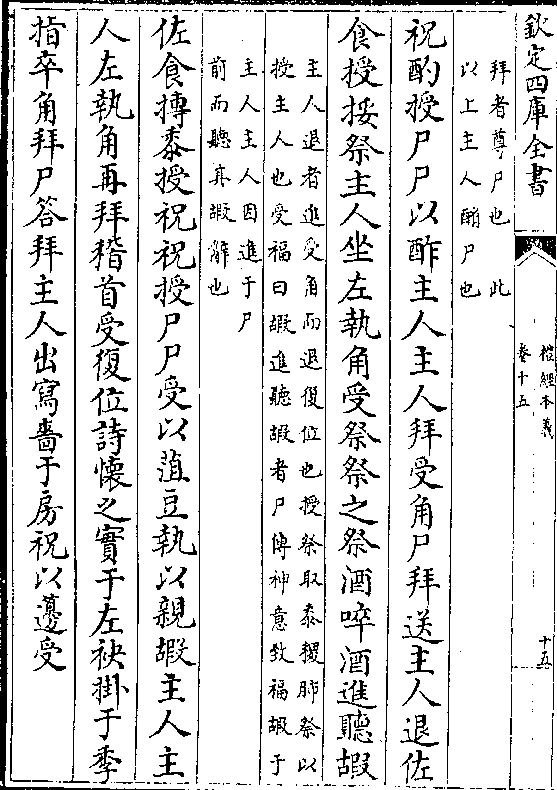 欽定四庫全書
禮經本義
卷十五
十五
拜者尊尸也　此
以上主人酳尸也
祝酌授尸尸以酢主人主人拜受角尸拜送主人退佐
食授挼祭主人坐左執角受祭祭之祭酒啐酒進聽嘏
主人退者進受角而退復位也授祭取黍稷肺祭以
授主人也受福曰嘏進聽嘏者尸傳神意致福嘏于
主人主人因進于尸
前而聽其嘏辭也
佐食摶黍授祝祝授尸尸受以菹豆執以親嘏主人主
人左執角再拜稽首受復位詩懷之實于左袂掛于季
指卒角拜尸答拜主人出寫嗇于房祝以籩受